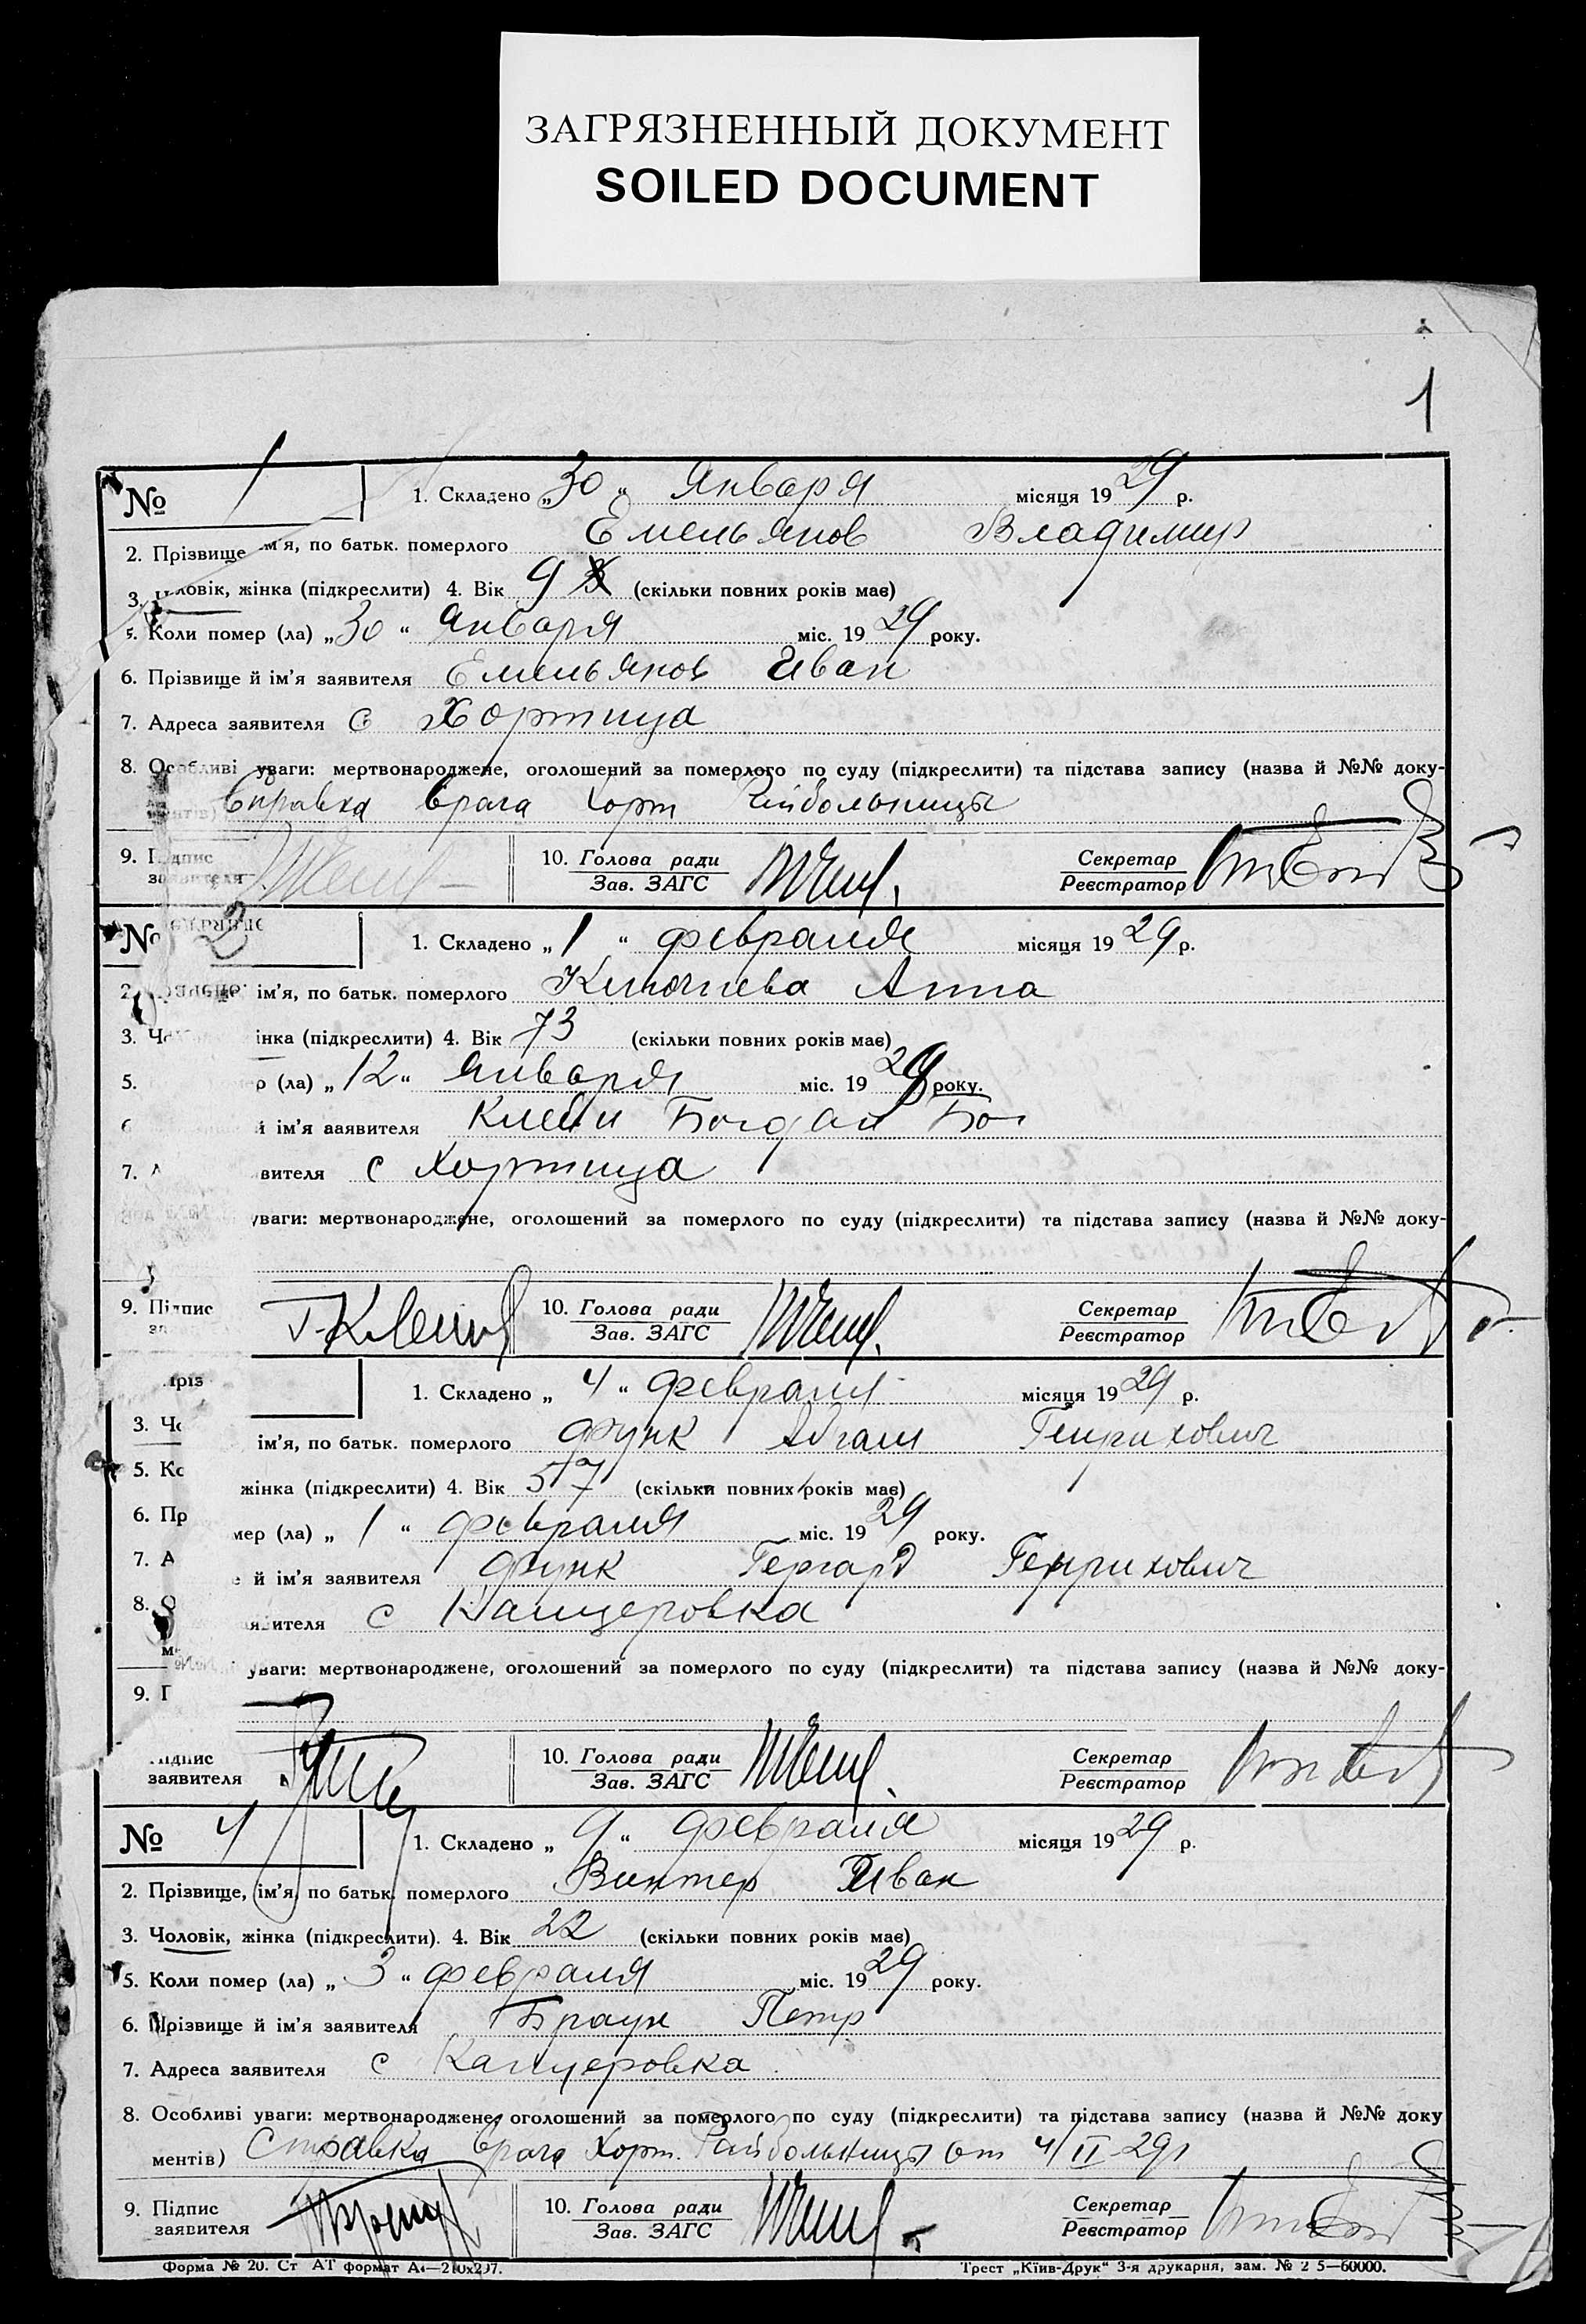 ЗАГРЯЗНЕННЫЙ ДОКУМЕНТ
SOILED DOCUMENT
1
№ 1
1. Складено „30“ Января місяця 1929 р.
2. Прізвище ім’я, по батьк. померлого Емельянов Владимир
3. Чоловік, жінка (підкреслити) 4. Вік 9 (скільки повних років має)
5. Коли помер (ла) „30“ Января міс. 1929 року.
6. Прізвище й ім’я заявителя Емельянов Иван
7. Адреса заявителя с Хортица
8. Особливі уваги: мертвонароджене, оголошений за померлого по суду (підкреслити) та підстава запису (назва й №№ доку-
ментів) Справка врача Хорт Райбольницы
9. Підпис заявителя
10. Голова ради
Зав. ЗАГС
Секретар
Реєстратор
№ 2
1. Складено „1“ февраля місяця 1929 р.
2. ім’я, по батьк. померлого Анна
3. інка (підкреслити) 4. Вік 73 (скільки повних років має)
5. р (ла) „12“ Января міс. 1929 року.
й ім’я заявителя Богдан
7. вителя с Хортица
уваги: мертвонароджене, оголошений за померлого по суду (підкреслити) та підстава запису (назва й №№ доку-
9. Підпис
10. Голова ради
Зав. ЗАГС
Секретар
Реєстратор
1. Складено „4“ февраля місяця 1929 р.
3. Чо
ім’я, по батьк. померлого Функ Абрам Генрихович
5. Ко
жінка (підкреслити) 4. Вік 57 (скільки повних років має)
6. Пр
мер (ла) „1“ февраля міс. 1929 року.
7. А
е й ім’я заявителя Функ Гергард Генрихович
8. О
явителя с Канцеровка
уваги: мертвонароджене, оголошений за померлого по суду (підкреслити) та підстава запису (назва й №№ доку-
9. П
Підпис
заявителя
10. Голова ради
Зав. ЗАГС
Секретар
Реєстратор
№ 4
1. Складено „9“ февраля місяця 1929 р.
2. Прізвище, ім’я, по батьк. померлого Винтер Иван
3. Чоловік, жінка (підкреслити). 4. Вік 22 (скільки повних років має)
5. Коли помер (ла) „3“ февраля міс. 1929 року.
6. Прізвище й ім’я заявителя Браун Петр
7. Адреса заявителя с Канцеровка
8. Особливі уваги: мертвонароджене, оголошений за померлого по суду (підкреслити) та підстава запису (назва й №№ доку
ментів) Справка врача Хорт. Райбольницы от 4/II-29г
9. Підпис
заявителя
10. Голова ради
Зав. ЗАГС
Секретар
Реєстратор
Форма № 20. Ст АТ формат А4—210х297.
Трест „Київ-Друк“ 3-я друкарня, зам. № 2 5—60000.